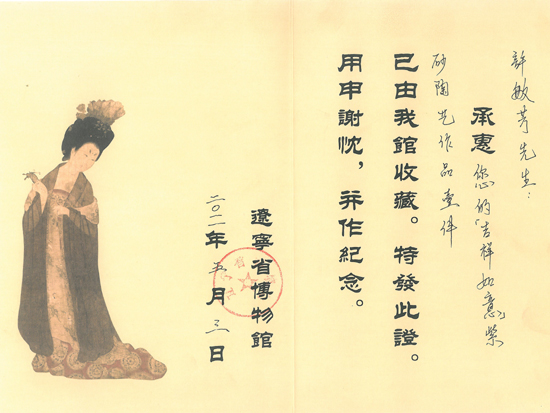 許敏芳先生：
承惠您的“吉祥如意”紫
砂陶艺作品壹件
已由我館收藏。特發此證。
用申謝忱，并作紀念。
遼寧省博物館
二〇二一年五月三日